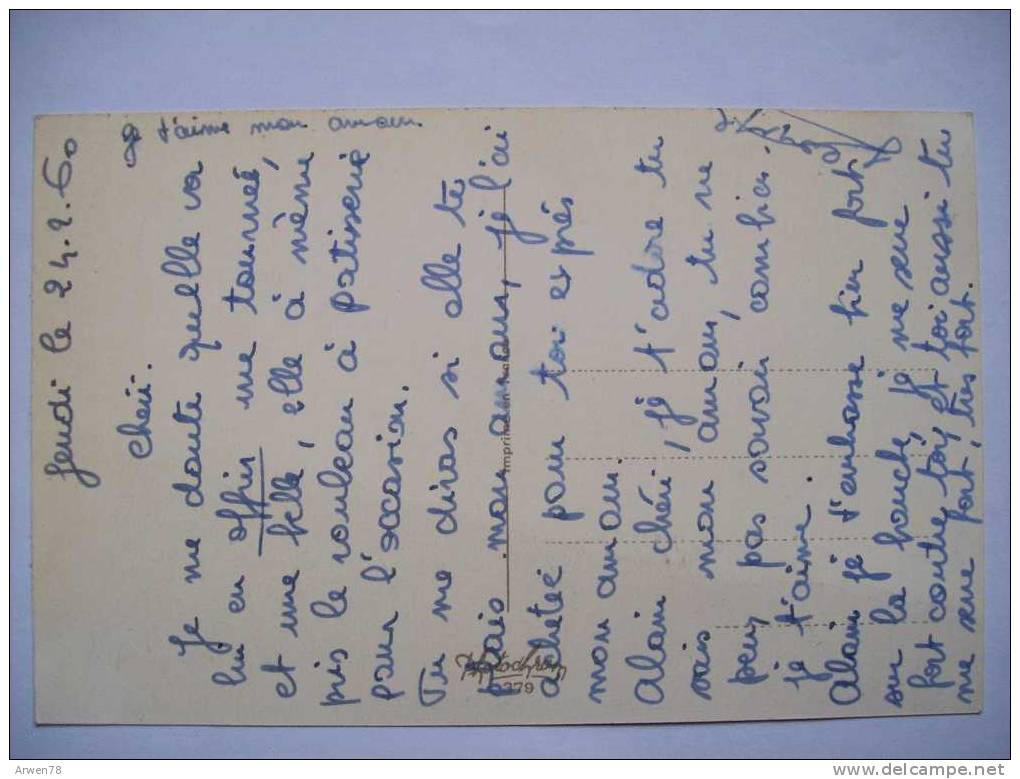 Jeudi le 24.2.60
Je t'aime mon amour.
Chéri.
Je me doute qu'elle va
lui en offrir une tournée,
et une belle, elle à même
pris le rouleau à patisserie
pour l'occasion.
Tu me diras si elle te
plais mon amour, je l'ai
achetée pour toi exprés
mon amour.
Alain chéri, je t'adore tu
sais mon amour, tu ne
peux pas savoir combien.
je t'aime.
Alain je t'embrasse bien fort
sur la bouche, je me serre
fort contre toi, et toi aussi tu
me serre fort, très fort.
Imprimé en
Photochrom
379
Arwen78
www.delcampe.net